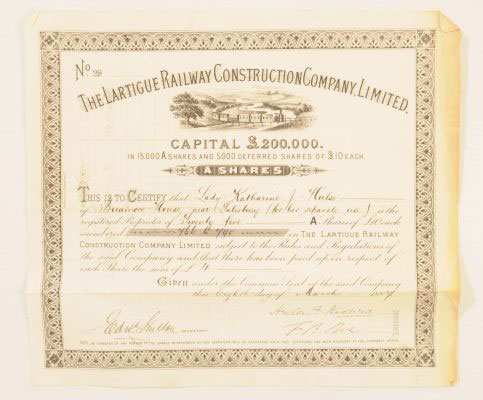 No 29
THE LARTIGUE RAILWAY CONSTRUCTION COMPANY, LIMITED.
CAPITAL £200,000.
IN 15,000 A SHARES AND 5000 DEFERRED SHARES OF £10 EACH.
A SHARES
THIS IS TO CERTIFY that Lady Katharine J Hulse
of House, near Salisbury (for her separate use) is the
registered Proprietor of Twenty five A Shares of £10 each
numbered to in THE LARTIGUE RAILWAY
CONSTRUCTION COMPANY LIMITED subject to the Rules and Regulations of
the said Company and that there has been paid up in respect of
each Share the sum of £ 4
Given under the Common Seal of the said Company
this Eighth day of March 1887